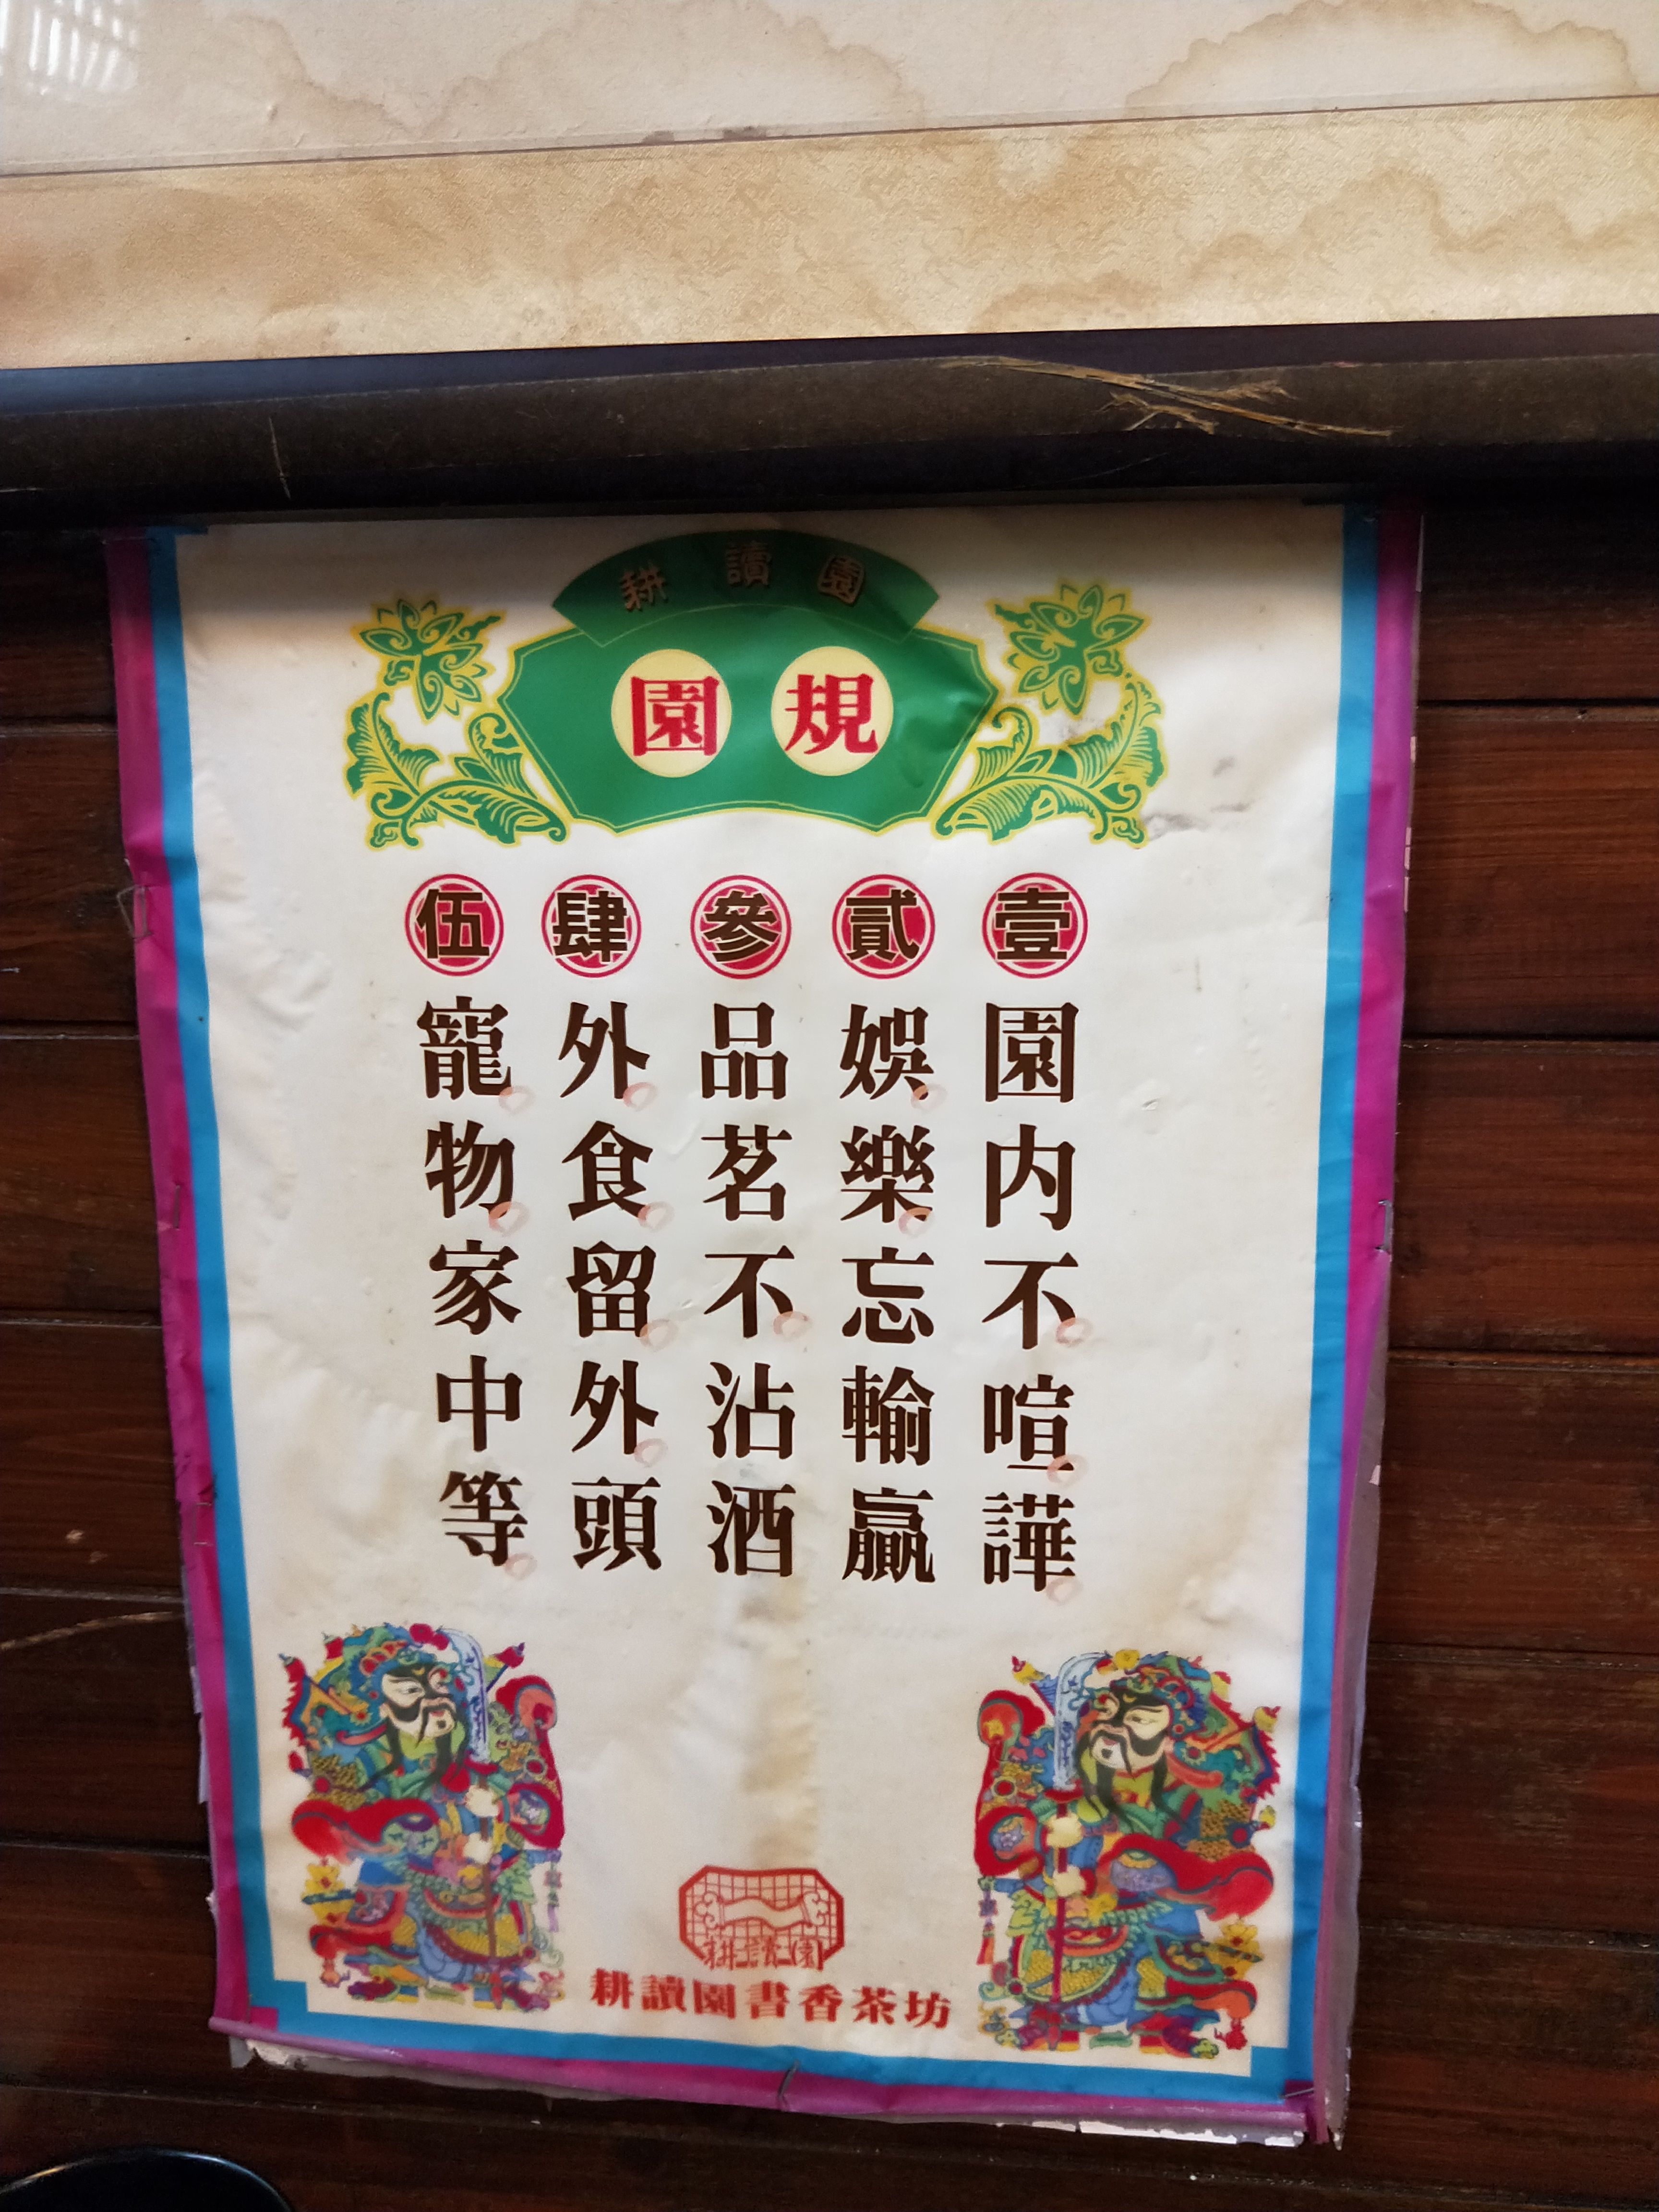 耕讀園
園規
壹 園内不喧譁
貳 娛樂忘輸贏
參 品茗不沾酒
肆 外食留外頭
伍 寵物家中等
耕讀園
耕讀園書香茶坊